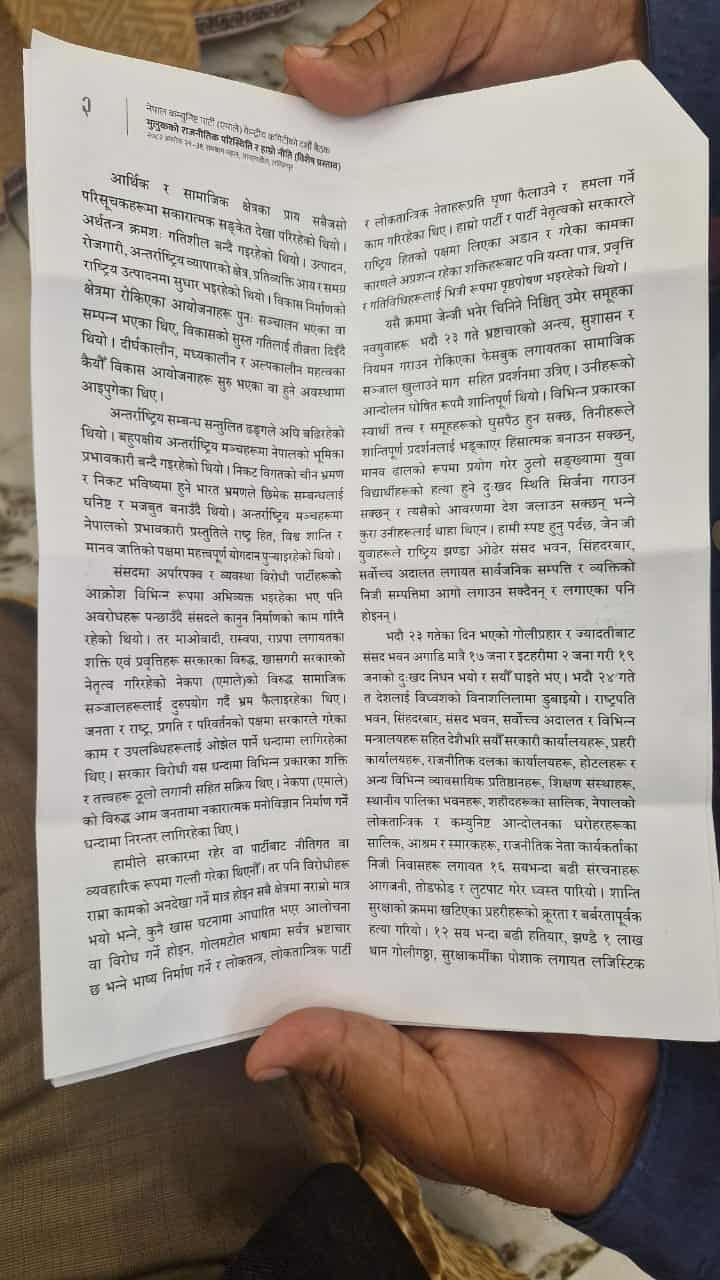 २
नेपाल कम्युनिष्ट पार्टी (एमाले) केन्द्रीय कमिटीको दशौँ बैठक
मुलुकको राजनीतिक परिस्थिति र हाम्रो नीति (विशेष प्रस्ताव)
२०८२ असोज २९-३१
आर्थिक र सामाजिक क्षेत्रका प्राय सबैजसो
परिसूचकहरूमा सकारात्मक सङ्केत देखा परिरहेको थियो ।
अर्थतन्त्र क्रमशः गतिशील बन्दै गइरहेको थियो । उत्पादन,
रोजगारी, अन्तर्राष्ट्रिय व्यापारको क्षेत्र, प्रतिव्यक्ति आय र समग्र
राष्ट्रिय उत्पादनमा सुधार भइरहेको थियो । विकास निर्माणको
क्षेत्रमा रोकिएका आयोजनाहरू पुनः सञ्चालन भएका वा
सम्पन्न भएका थिए, विकासको सुस्त गतिलाई तीव्रता दिइँदै
थियो । दीर्घकालीन, मध्यकालीन र अल्पकालीन महत्वका
कैयौँ विकास आयोजनाहरू सुरु भएका वा हुने अवस्थामा
आइपुगेका थिए ।
अन्तर्राष्ट्रिय सम्बन्ध सन्तुलित ढङ्गले अघि बढिरहेको
थियो । बहुपक्षीय अन्तर्राष्ट्रिय मञ्चहरूमा नेपालको भूमिका
प्रभावकारी बन्दै गइरहेको थियो । निकट विगतको चीन भ्रमण
र निकट भविष्यमा हुने भारत भ्रमणले छिमेक सम्बन्धलाई
घनिष्ट र मजबुत बनाउँदै थियो । अन्तर्राष्ट्रिय मञ्चहरूमा
नेपालको प्रभावकारी प्रस्तुतिले राष्ट्र हित, विश्व शान्ति र
मानव जातिको पक्षमा महत्त्वपूर्ण योगदान पुऱ्याइरहेको थियो ।
संसदमा अपरिपक्व र व्यवस्था विरोधी पार्टीहरूको
आक्रोश विभिन्न रूपमा अभिव्यक्त भइरहेका भए पनि
अवरोधहरू पन्छाउँदै संसदले कानुन निर्माणको काम गरिनै
रहेको थियो । तर माओवादी, रास्वपा, राप्रपा लगायतका
शक्ति एवं प्रवृत्तिहरू सरकारका विरुद्ध, खासगरी सरकारको
नेतृत्व गरिरहेको नेकपा (एमाले)को विरुद्ध सामाजिक
सञ्जालहरूलाई दुरुपयोग गर्दै भ्रम फैलाइरहेका थिए ।
जनता र राष्ट्र, प्रगति र परिवर्तनको पक्षमा सरकारले गरेका
काम र उपलब्धिहरूलाई ओझेल पार्ने धन्दामा लागिरहेका
थिए । सरकार विरोधी यस धन्दामा विभिन्न प्रकारका शक्ति
र तत्त्वहरू ठूलो लगानी सहित सक्रिय थिए । नेकपा (एमाले)
को विरुद्ध आम जनतामा नकारात्मक मनोविज्ञान निर्माण गर्ने
धन्दामा निरन्तर लागिरहेका थिए ।
हामीले सरकारमा रहेर वा पार्टीबाट नीतिगत वा
व्यवहारिक रूपमा गल्ती गरेका थिएनौँ । तर पनि विरोधीहरू
राम्रा कामको अनदेखा गर्ने मात्र होइन सबै क्षेत्रमा नराम्रो मात्र
भयो भन्ने, कुनै खास घटनामा आधारित भएर आलोचना
वा विरोध गर्ने होइन, गोलमटोल भाषामा सर्वत्र भ्रष्टाचार
छ भन्ने भाष्य निर्माण गर्ने र लोकतन्त्र, लोकतान्त्रिक पार्टी
र लोकतान्त्रिक नेताहरूप्रति घृणा फैलाउने र हमला गर्ने
काम गरिरहेका थिए । हाम्रो पार्टी र पार्टी नेतृत्वको सरकारले
राष्ट्रिय हितको पक्षमा लिएका अडान र गरेका कामका
कारणले अप्रशन्न रहेका शक्तिहरूबाट पनि यस्ता पात्र, प्रवृत्ति
र गतिविधिहरूलाई भित्री रूपमा पृष्ठपोषण भइरहेको थियो ।
यसै क्रममा जेन्जी भनेर चिनिने निश्चित् उमेर समूहका
नवयुवाहरू भदौ २३ गते भ्रष्टाचारको अन्त्य, सुशासन र
नियमन गराउन रोकिएका फेसबुक लगायतका सामाजिक
सञ्जाल खुलाउने माग सहित प्रदर्शनमा उत्रिए । उनीहरूको
आन्दोलन घोषित रूपमै शान्तिपूर्ण थियो । विभिन्न प्रकारका
स्वार्थी तत्त्व र समूहहरूको घुसपैठ हुन सक्छ, तिनीहरूले
शान्तिपूर्ण प्रदर्शनलाई भड्काएर हिंसात्मक बनाउन सक्छन्,
मानव ढालको रूपमा प्रयोग गरेर ठुलो सङ्ख्यामा युवा
विद्यार्थीहरूको हत्या हुने दुःखद स्थिति सिर्जना गराउन
सक्छन् र त्यसैको आवरणमा देश जलाउन सक्छन् भन्ने
कुरा उनीहरूलाई थाहा थिएन । हामी स्पष्ट हुनु पर्दछ, जेन जी
युवाहरूले राष्ट्रिय झण्डा ओढेर संसद भवन, सिंहदरबार,
सर्वोच्च अदालत लगायत सार्वजनिक सम्पत्ति र व्यक्तिको
निजी सम्पत्तिमा आगो लगाउन सक्दैनन् र लगाएका पनि
होइनन् ।
भदौ २३ गतेका दिन भएको गोलीप्रहार र ज्यादतीबाट
संसद भवन अगाडि मात्रै १७ जना र इटहरीमा २ जना गरी १९
जनाको दुःखद निधन भयो र सयौँ घाइते भए । भदौ २४ गते
त देशलाई विध्वंशको विनाशलिलामा डुबाइयो । राष्ट्रपति
भवन, सिंहदरबार, संसद भवन, सर्वोच्च अदालत र विभिन्न
मन्त्रालयहरू सहित देशैभरि सयौँ सरकारी कार्यालयहरू, प्रहरी
कार्यालयहरू, राजनीतिक दलका कार्यालयहरू, होटलहरू र
अन्य विभिन्न व्यावसायिक प्रतिष्ठानहरू, शिक्षण संस्थाहरू,
स्थानीय पालिका भवनहरू, शहीदहरूका सालिक, नेपालको
लोकतान्त्रिक र कम्युनिष्ट आन्दोलनका धरोहरहरूका
सालिक, आश्रम र स्मारकहरू, राजनीतिक नेता कार्यकर्ताका
निजी निवासहरू लगायत १६ सयभन्दा बढी संरचनाहरू
आगजनी, तोडफोड र लुटपाट गरेर ध्वस्त पारियो । शान्ति
सुरक्षाको क्रममा खटिएका प्रहरीहरूको क्रूरता र बर्बरतापूर्वक
हत्या गरियो । १२ सय भन्दा बढी हतियार, झण्डै १ लाख
थान गोलीगठ्ठा, सुरक्षाकर्मीका पोशाक लगायत लजिस्टिक